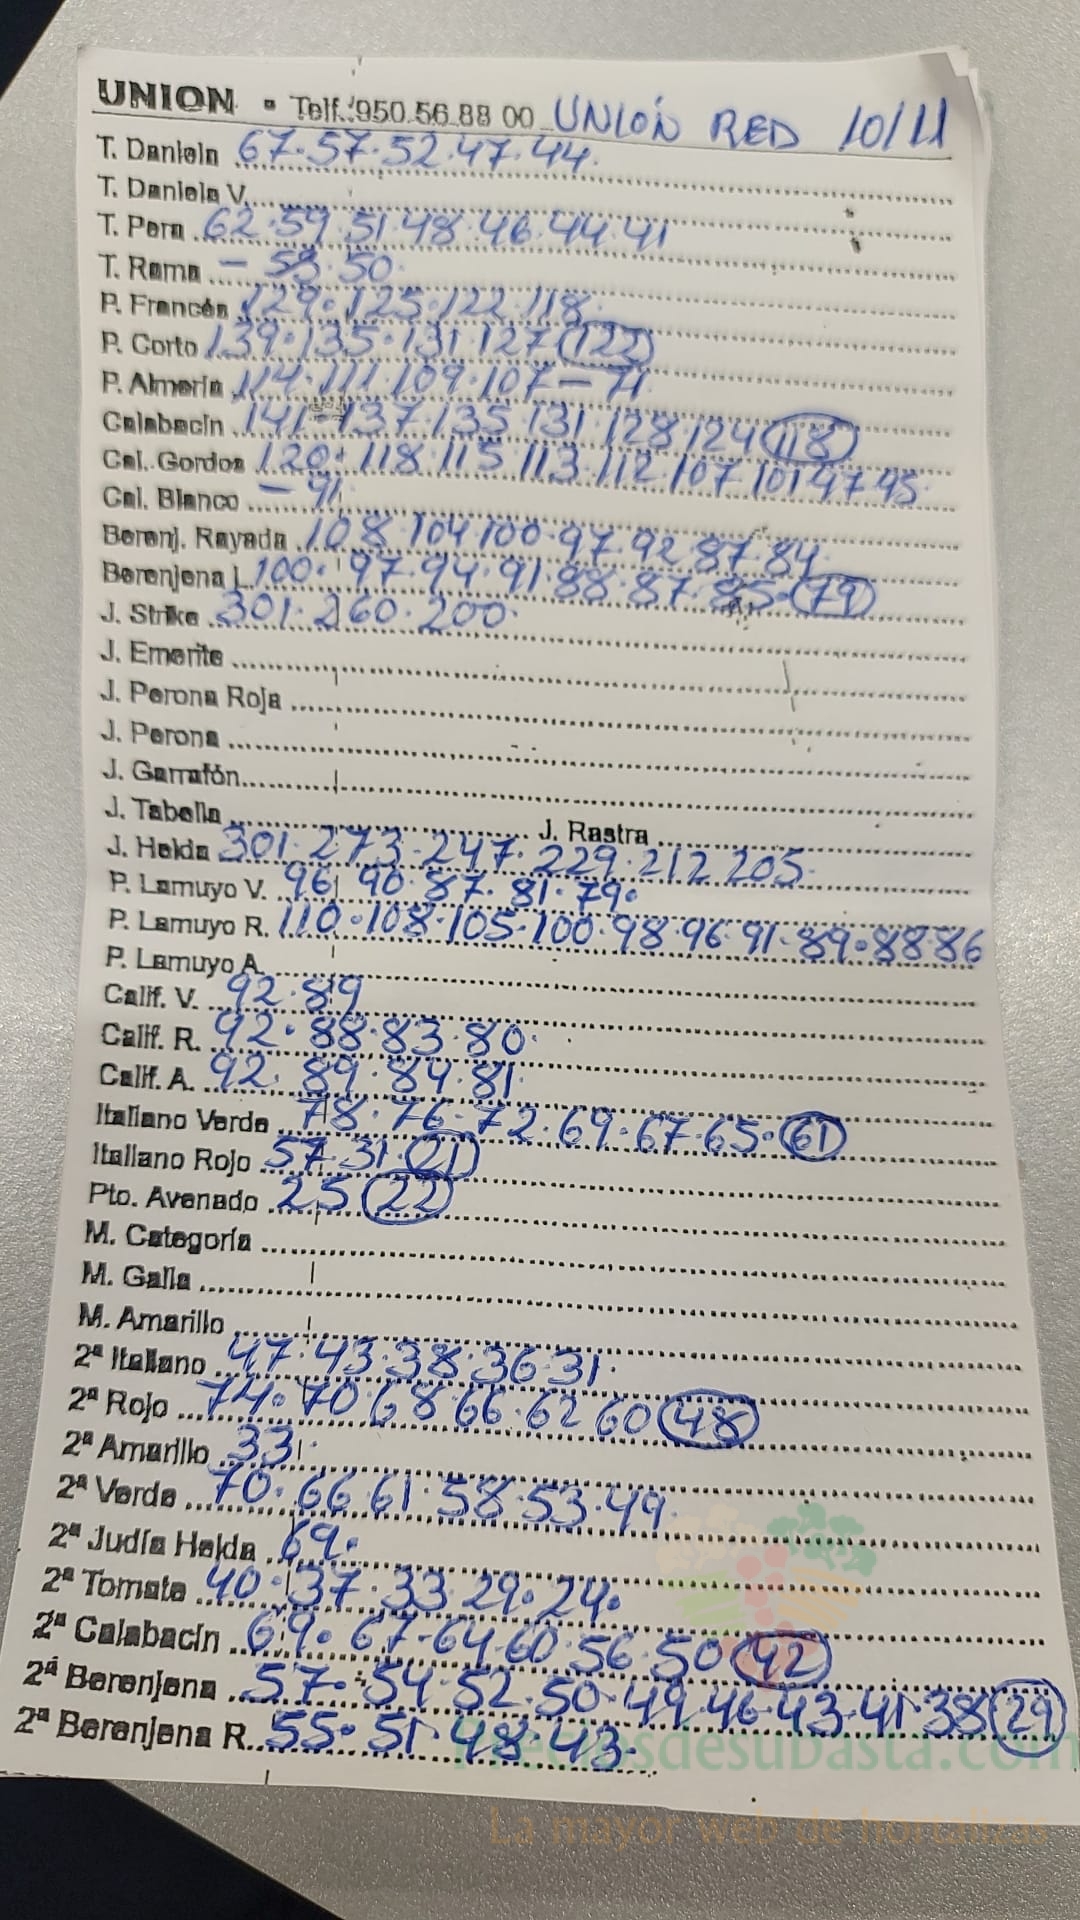 UNION - Telf.: 950.56.88 00 UNIÓN RED 10/11
T. Daniela 67.57.52.47.44.
T. Daniela V.
T. Pera 62.59.51.48.46.44.41
T. Rama - 53.50.
P. Francés 129.125.122.118.
P. Corto 139.135.131.127 (122)
P. Almería 114.111.109.107-71
Calabacín 141-137.135.131.128.124 (118)
Cal. Gordos 120.118.115.113.112.107.101 97 95
Cal. Blanco - 91
Berenj. Rayada 108.104 100.97.92 87.84
Berenjena L. 100.97.94.91.88.87.85.(79)
J. Strike 301.260.200.
J. Emerite
J. Perona Roja
J. Perona
J. Garrafón
J. Tabella J. Rastra
J. Helda 301.273-247.229.212 205.
P. Lamuyo V. 96 90.87.81.79.
P. Lamuyo R. 110.108.105-100.98 96 91.89.88 86
P. Lamuyo A.
Calif. V. 92.89
Calif. R. 92.88.83.80.
Calif. A. 92.89.84.81.
Italiano Verde 78.76-72.69.67.65.(61)
Italiano Rojo 57.31.(21)
Pto. Avenado 25 (22)
M. Categoría
M. Galia
M. Amarillo
2ª Italiano 47.43.38.36.31.
2ª Rojo 74.70.68 66.62 60 (48)
2ª Amarillo 33.
2ª Verde 70.66 61.58.53.49.
2ª Judía Helda 69.
2ª Tomate 40.37.33 29.24.
2ª Calabacín 69.67-64.60.56.50 (42)
2ª Berenjena 57.54.52.50.49.46.43.41.38 (29)
2ª Berenjena R. 55.51.48.43.
Preciosdesubasta.com
La mayor web de hortalizas